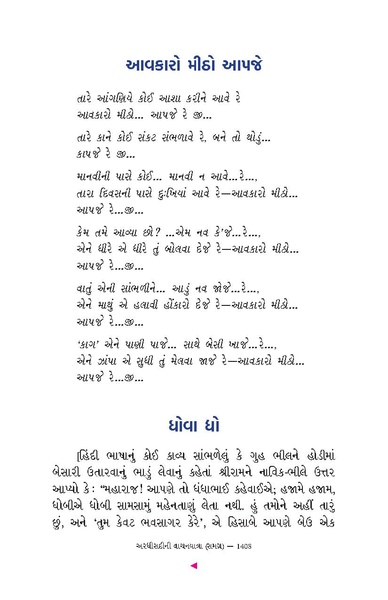 આવકારો મીઠો આપજે
તારે આંગણિયે કોઈ આશા કરીને આવે રે
આવકારો મીઠો... આપજે રે જી...
તારે કાને કોઈ સંકટ સંભળાવે રે, બને તો થોડું...
કાપજે રે જી...
માનવીની પાસે કોઈ... માનવી ન આવે...રે...,
તારા દિવસની પાસે દુઃખિયાં આવે રે—આવકારો મીઠો...
આપજે રે...જી...
કેમ તમે આવ્યા છો? ...એમ નવ કે'જે...રે...,
એને ધીરે એ ધીરે તું બોલવા દેજે રે—આવકારો મીઠો...
આપજે રે...જી...
વાતું એની સાંભળીને... આડું નવ જોજે...રે...,
એને માથું એ હલાવી હોંકારો દેજે રે—આવકારો મીઠો...
આપજે રે...જી...
'કાગ' એને પાણી પાજે... સાથે બેસી ખાજે...રે...,
એને ઝાંપા એ સુધી તું મેલવા જાજે રે—આવકારો મીઠો...
આપજે રે...જી...
ધોવા દ્યો
[હિંદી ભાષાનું કોઈ કાવ્ય સાંભળેલું કે ગુહ ભીલને હોડીમાં
બેસારી ઉતારવાનું ભાડું લેવાનું કહેતાં શ્રીરામને નાવિક-ભીલે ઉત્તર
આપ્યો કે: "મહારાજ! આપણે તો ધંધાભાઈ કહેવાઈએ; હજામે હજામ,
ધોબીએ ધોબી સામસામું મહેનતાણું લેતા નથી. હું તમોને અહીં તારું
છું, અને 'તુમ કેવટ ભવસાગર કેરે', એ હિસાબે આપણે બેઉ એક
અરધી સદીની વાચનયાત્રા (સમગ્ર) — 1408